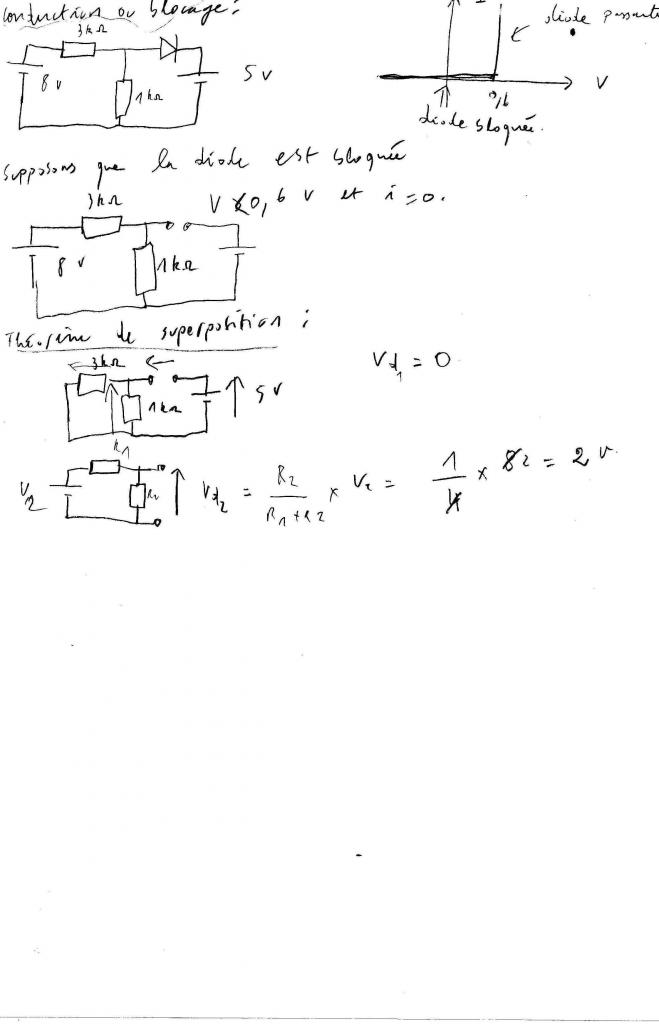 Conduction ou blocage :
3kΩ
8 v
1kΩ
5 v
I
diode passante
V
0,6
diode bloquée.
Supposons que la diode est bloquée
V < 0,6 v et i = 0.
3kΩ
8 v
1kΩ
Théorème de superposition :
3kΩ
1kΩ
5v
Vd1 = 0
R1
V2
R2
Vd2 = R2 / (R1 + R2) × V2 = 1/4 × 8 2 = 2 v.